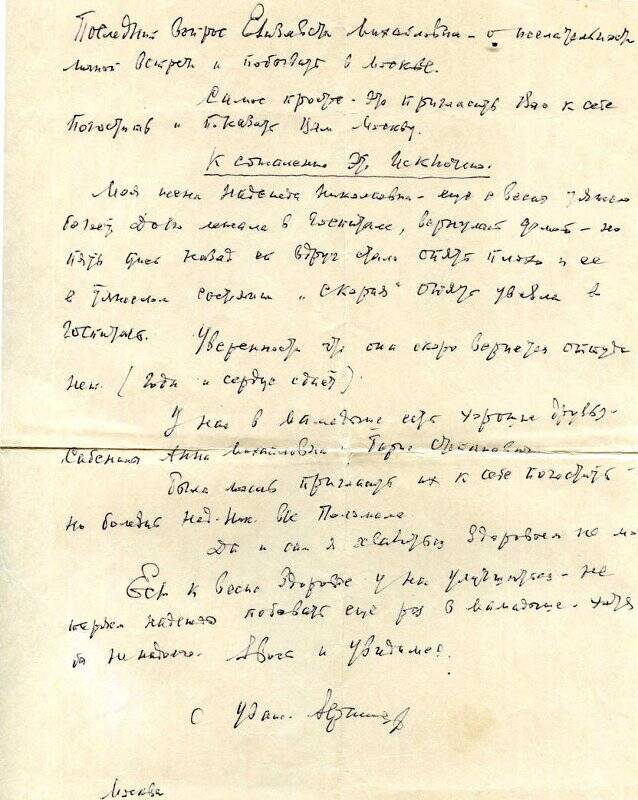 Последний вопрос Елизавета Михайловна - о желательности
личной встречи и побывать в Москве.
Самое простое - это пригласить Вас к себе
погостить и показать Вам Москву.
К сожалению это исключено.
Моя жена Надежда Николаевна - еще с весны тяжело
болеет. Долго лежала в госпитале, вернулась домой - но
пять дней назад ей вдруг стало опять плохо и ее
в тяжелом состоянии "скорая" опять увезла в
госпиталь. Уверенности что она скоро вернется оттуда
нет. (годы и сердце сдает)
У нас в Мамадыше есть хорошие друзья -
Сабенина Анна Михайловна и Борис Степанович
Была мысль пригласить их к себе погостить -
но болезнь Над. Ник. все поломала
Да и сам я хвалиться здоровьем не мо
Если к весне здоровье у нас улучшится - не
теряем надежды побывать еще раз в Мамадыше - хотя
бы не надолго. Авось и увидимся.
С уваж.
Москва